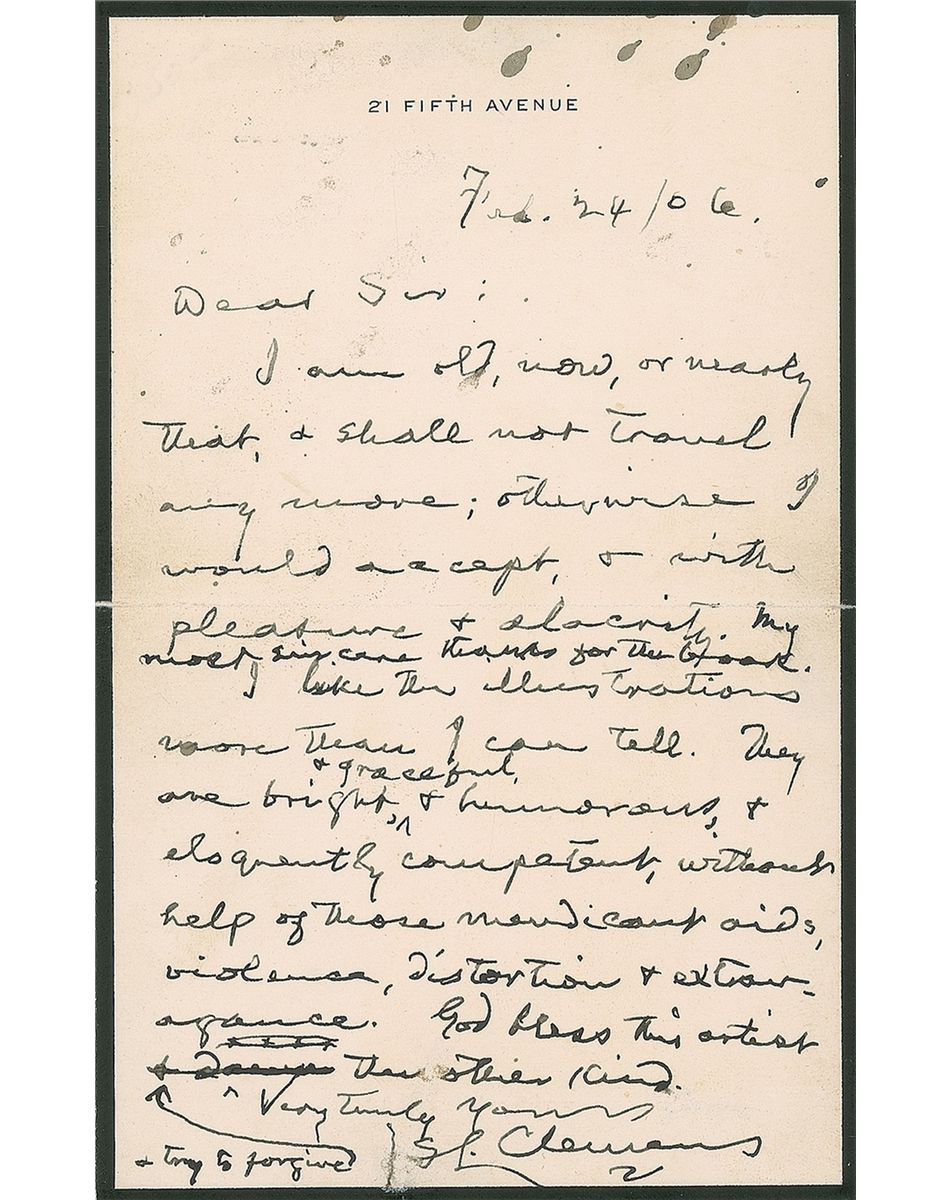 21 FIFTH AVENUE
Feb. 24/06.
Dear Sir:
I am old, now, or nearly
that, & shall not travel
any more; otherwise I
would accept, & with
pleasure & alacrity. My
most sincere thanks for the book.
I like the illustrations
more than I can tell. They
& graceful,
are bright, & humorous, &
eloquently competent, without
help of those mendicant aids,
violence, distortion & extrav-
agance. God bless this artist
& damn the other kind.
Very truly yours
& try to forgive
SL. Clemens